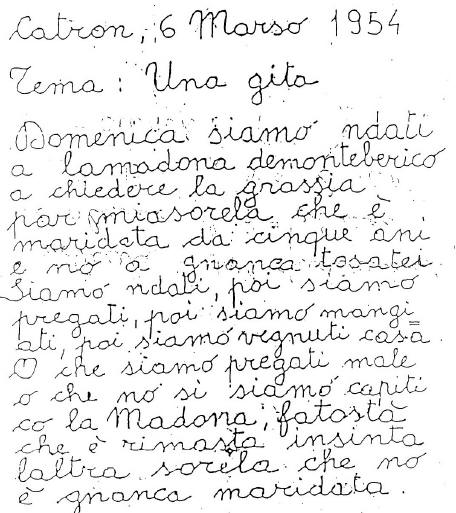 Catron, 6 Marso 1954
Tema : Una gita
Domenica siamo ndati
a lamadona demonteberico
a chiedere la grassia
par miasorela che è
maridata da cinque ani
e no à gnanca tosatei
Siamo ndati, poi siamo
pregati, poi siamo mangi
ati, poi siamo vegnuti casa
O che siamo pregati male
o che no si siamo capiti
co la Madona, fatostà
che è rimasta insinta
laltra sorela che no
è gnanca maridata.